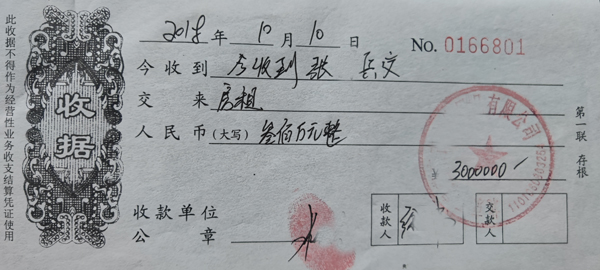 此收据不得作为经营性业务收支结算凭证使用
收据
2018年12月10日 NO.0166801
今收到 今收到张 兵交
交来 房租
人民币(大写) 叁佰万元整
3000000
有限公司
第一联 存根
收款单位
公章
收款人
交款人